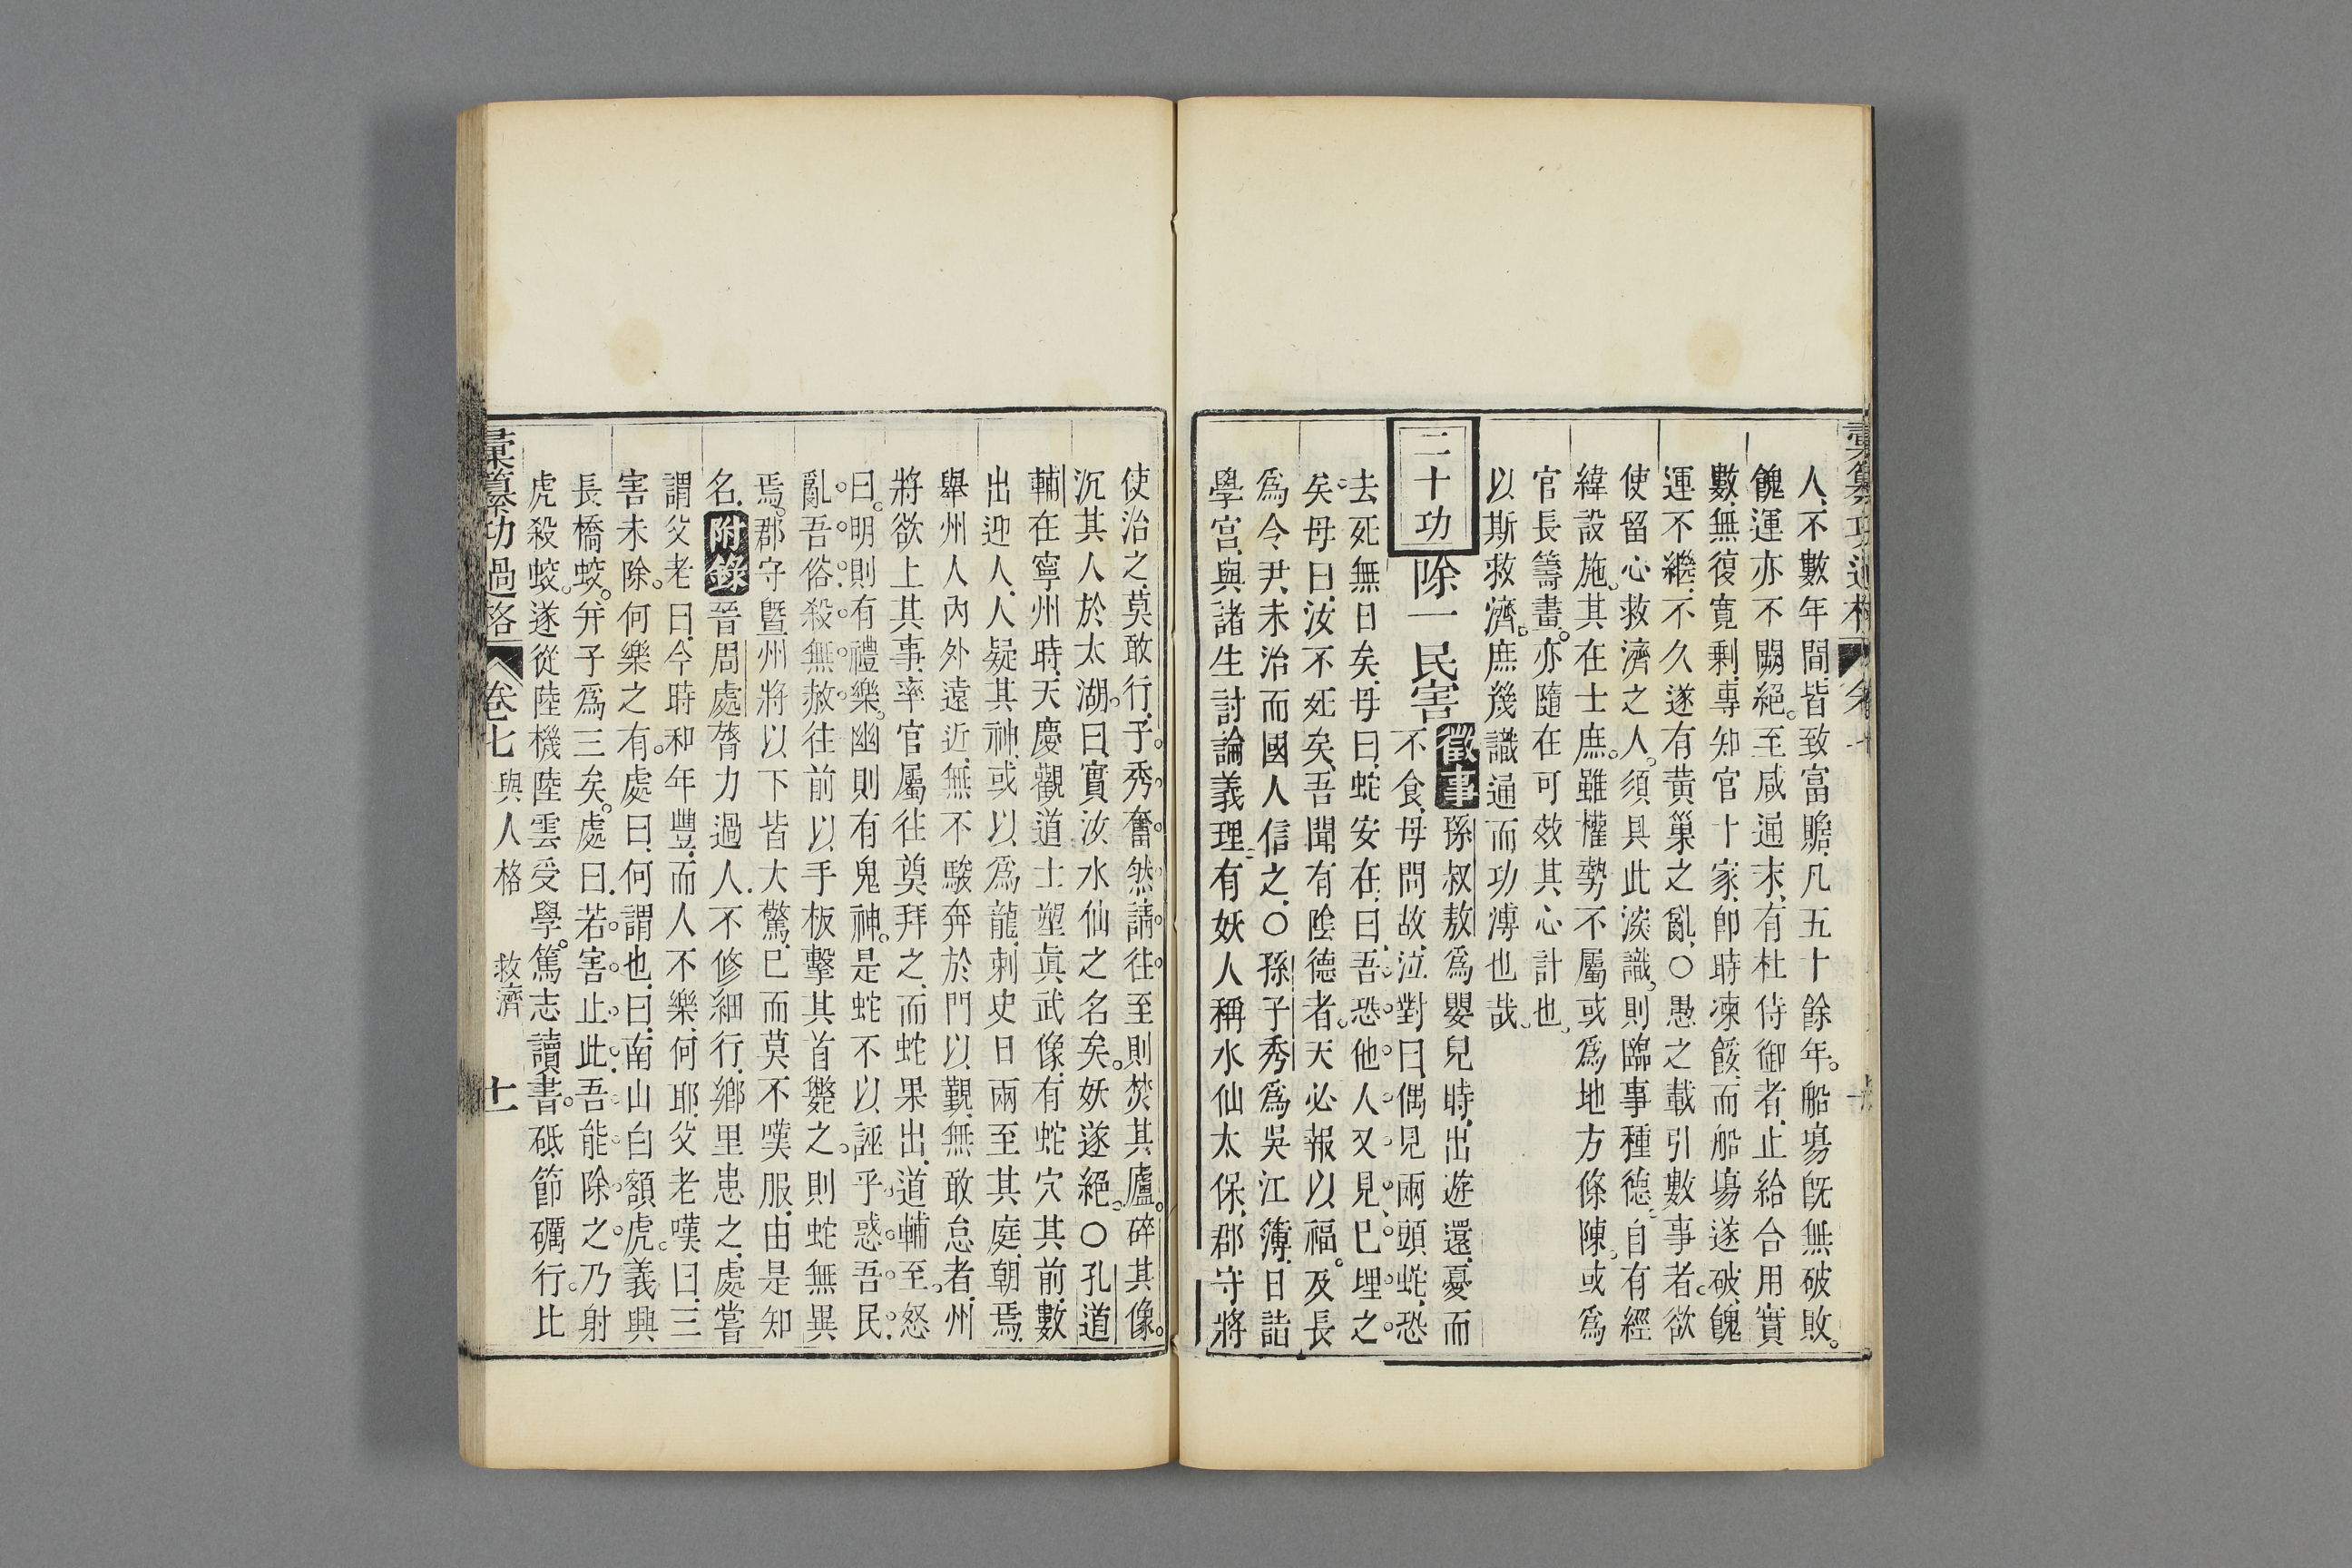 人不數年間皆致富贍凡五十餘年船場旣無破敗
餽運亦不闕絕至咸通末有杜侍御者止給合用實
數無復寬剩專知官十家卽時凍餒而船場遂破餽
運不繼不久遂有黃巢之亂○愚之載引數事者欲
使留心救濟之人須具此淡識則臨事種德自有經
緯設施其在士庶雖權勢不屬或爲地方條陳或爲
官長籌畫亦隨在可效其心計也
以斯救濟庶幾識通而功溥也哉
二十功 除一民害 徵事 孫叔敖爲嬰兒時出遊還憂而
不食母問故泣對曰偶見兩頭蛇恐
去死無日矣母曰蛇安在曰吾恐他人又見已埋之
矣母曰汝不死矣吾聞有陰德者天必報以福及長
爲令尹未治而國人信之○孫子秀爲吳江簿日詣
學宮與諸生討論義理有妖人稱水仙太保郡守將
使治之莫敢行子秀奮然請往至則焚其廬碎其像
沉其人於太湖曰實汝水仙之名矣妖遂絕○孔道
輔在寧州時天慶觀道士塑眞武像有蛇穴其前數
出迎人人疑其神或以爲龍刺史日兩至其庭朝焉
舉州人內外遠近無不駿奔於門以覲無敢怠者州
將欲上其事率官屬往奠拜之而蛇果出道輔至怒
曰明則有禮樂幽則有鬼神是蛇不以誣乎惑吾民
亂吾俗殺無赦往前以手板擊其首斃之則蛇無異
焉郡守曁州將以下皆大驚已而莫不嘆服由是知
名 附錄 晉周處膂力過人不修細行鄉里患之處嘗
謂父老曰今時和年豐而人不樂何耶父老嘆曰三
害未除何樂之有處曰何謂也曰南山白額虎義興
長橋蛟幷子爲三矣處曰若害止此吾能除之乃射
虎殺蛟遂從陸機陸雲受學篤志讀書砥節礪行比
彙纂功過格 卷七 與人格 救濟 十一